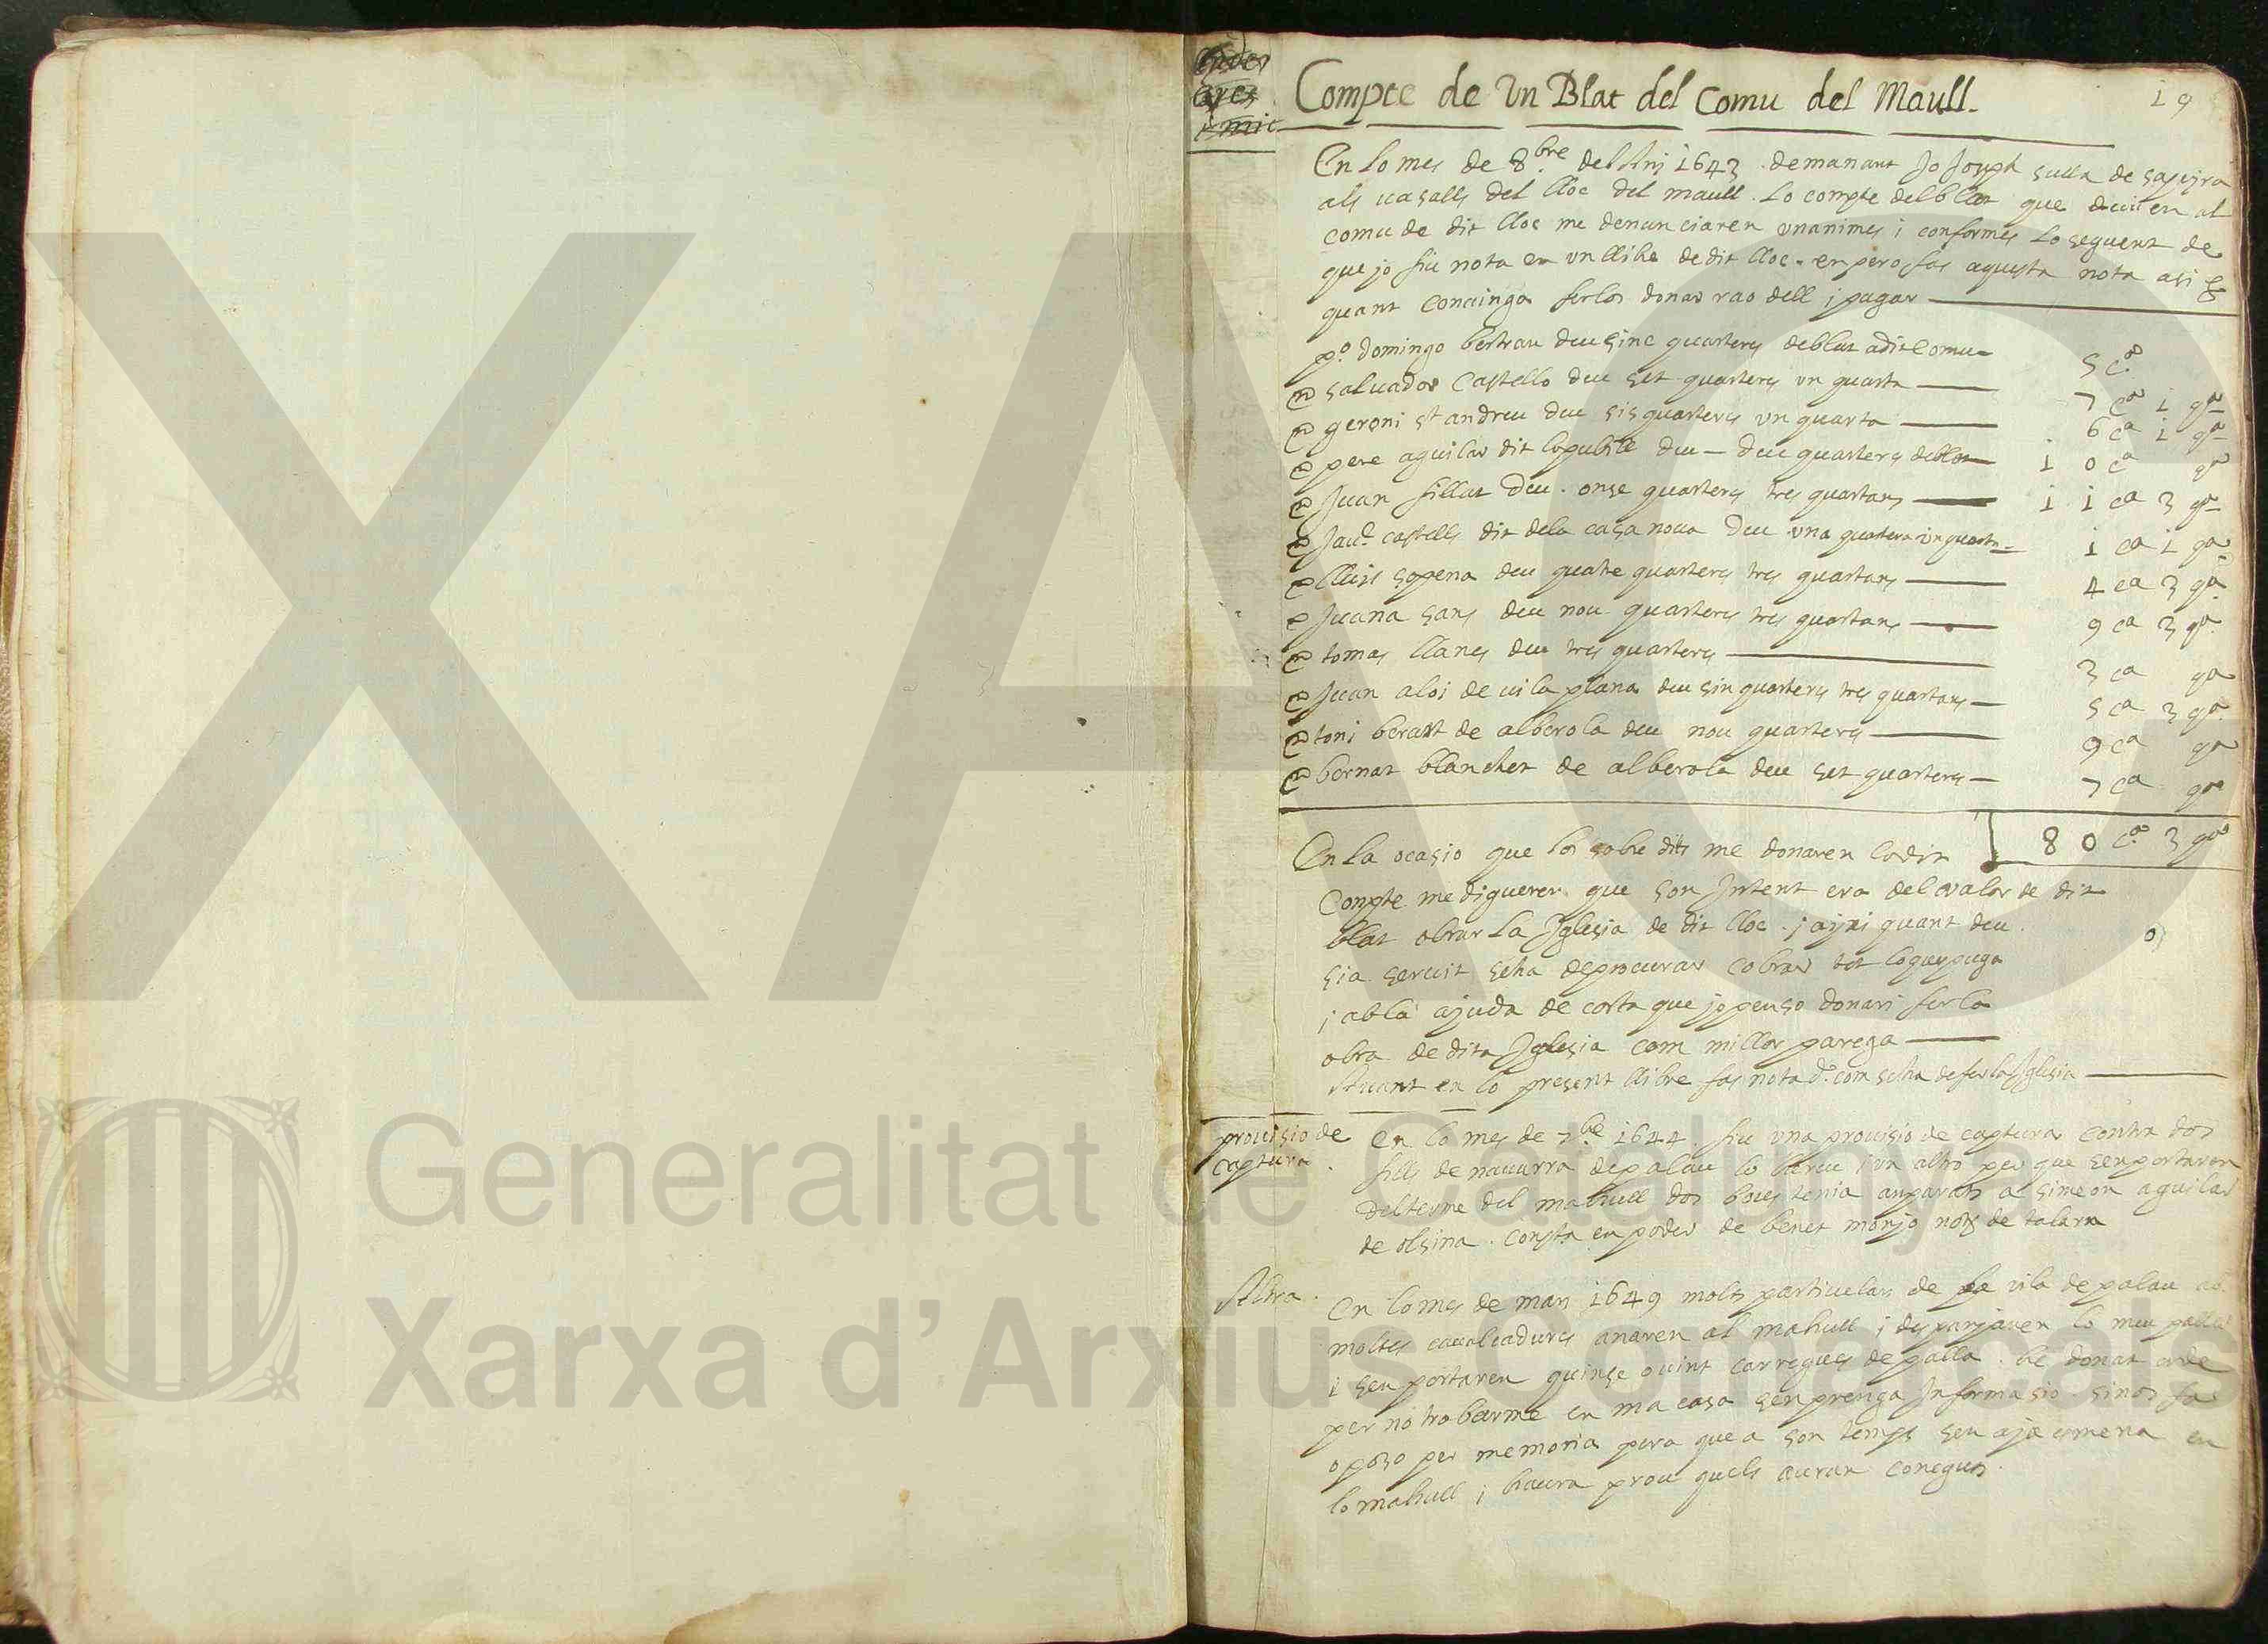 Compte de Un Blat del Comu del Maull.
19
En lo mes de 8bre del Ani 1643 demanant Jo Joseph sulla de sapeyra
als uasalls del lloc del maull. Lo compte del blat que deuien al
comu de dit lloc me denunciaren unanimes i conformes Lo seguent de
que jo fiu nota en un llibre de dit lloc. enpero fas aquesta nota asi
quant convinga ferlos donar rao dell i pagar
po. domingo bertran deu sinc quarteres de blat a dit Comu 5 ca.
saluador Castello deu set quarteres un quarta 7 ca 1 qa
geroni st andreu deu sis quarteres un quarta 6 ca 1 qa
pere aguilar dit lo pubill deu — deu quarteres de blat 10 ca qa
Juan fillat deu. onse quarteres tres quartans 11 ca 3 qa
Jau.e castells dit dela casa noua deu una quartera un quarta 1 ca 1 qa
lluis sopena deu quatre quarteres tres quartans 4 ca 3 qa
Juana sans deu nou quarteres tres quartans 9 ca 3 qa
tomas llanes deu tres quarteres 3 ca qa
Juan aloi de uilaplana deu sin quarteres tres quartans 5 ca 3 qa
toni berart de alberola deu nou quarteres 9 ca qa
bernat blanchet de alberola deu set quarteres 7 ca qa
80 ca. 3 qa
En la ocasio que los sobre dits me donaren lo dit
Compte me digueren que son Intent era del valor de dit
blat obrar La Iglesia de dit lloc. i axi quant deu
sia seruit seha de procurar cobrar tot lo que puga
i ab la ajuda de costa que jo penso donari fer la
obra de dita Iglesia com millor parega
Auant en lo present llibre fas nota de com seha de fer la Iglesia
prouisio de
captura.
En lo mes de 7bre 1644. fiu una prouisio de captura contra dos
fills de nauarra de palau lo hereu i un altro per que senportaren
del terme del mahull dos boues tenia anparats a simeon aguilar
de olsina. consta en poder de benet monjo nots de talarn
Altra.
En lo mes de mars 1649 molts particulars de la uila de palau ab
moltes caualcadures anaren al mahull i desparjaren lo meu paller
i sen portaren quinse o uint carregues de palla. he donat orde
per no trobarme en ma casa senprenga Informasio. sinos fa
o poso per memoria pera que a son temps sen aja esmena en
lo mahull i haura prou quels auran coneguts.
Generalitat de Catalunya
Xarxa d'Arxius Comarcals
XAC